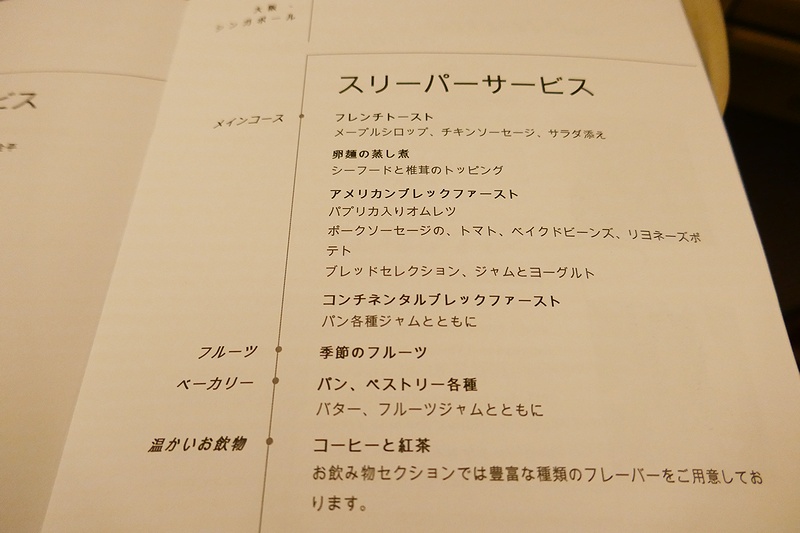 大阪 -
シンガポール
ビス
スリーパーサービス
メインコース
フレンチトースト
メープルシロップ、チキンソーセージ、サラダ添え
卵麺の蒸し煮
シーフードと椎茸のトッピング
アメリカンブレックファースト
パプリカ入りオムレツ
ポークソーセージの、トマト、ベイクドビーンズ、リヨネーズポ
テト
ブレッドセレクション、ジャムとヨーグルト
コンチネンタルブレックファースト
パン各種ジャムとともに
フルーツ
季節のフルーツ
ベーカリー
パン、ペストリー各種
バター、フルーツジャムとともに
温かいお飲物
コーヒーと紅茶
お飲み物セクションでは豊富な種類のフレーバーをご用意してお
ります。